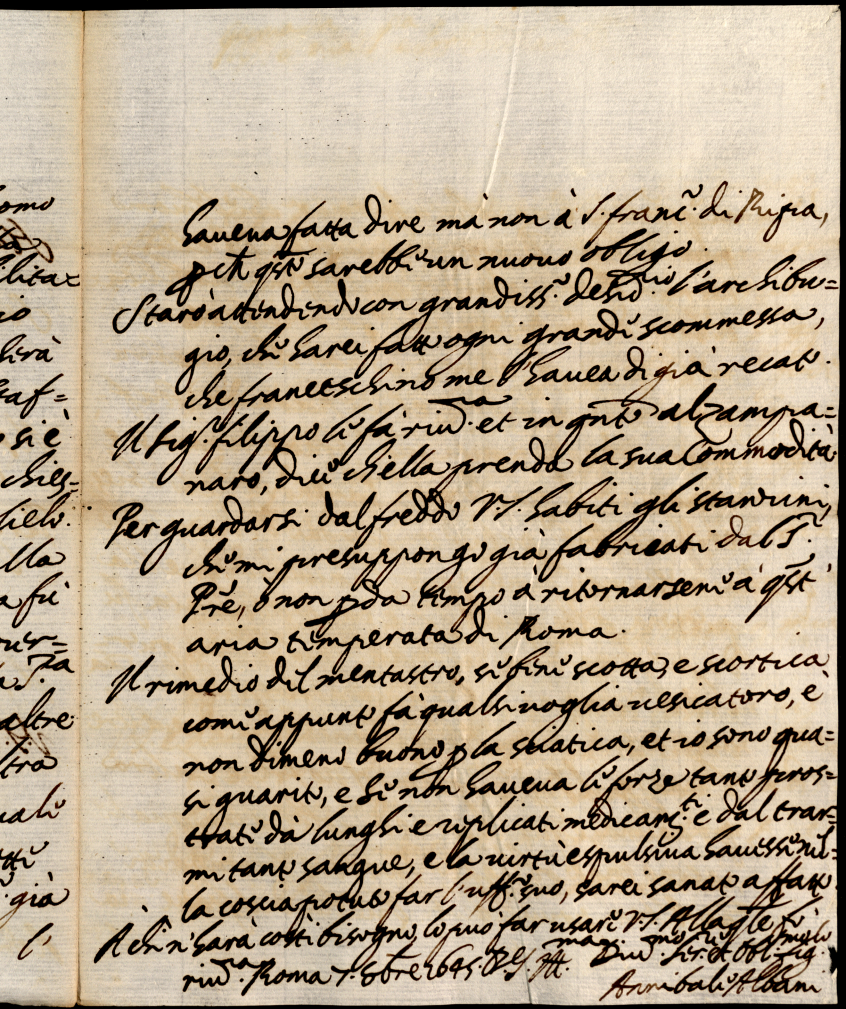 omo
litaz
io
lierà
saf=
o si è
chies=
lielo.
lla
a fù
uer=
a S.ta
altre
tra
uali
tti
già
l'
haueua fatta dire mà non à S. franc.º di Ripa,
p ch qsto sarebbe un nuouo obligo.
Starò attendendo con grandiss.º desid.rio l'archibu=
gio, che harei fatto ogni grande scommessa,
che franceschino me l'hauea di già recato.
Il Sig.r filippo le fà riu.za et in qnto al zampa=
naro, dice ch'ella prenda la sua Commodità
Per guardarsi dal freddo V.S. habiti gli stanzini,
che mi presuppongo già fabricati dal S.
Pre, ò non pda tempo à ritornarsene à qsta
aria temperata di Roma.
Il rimedio del mentastro, se bene scotta, e scortica
come appunto fà qualsiuoglia uesicatoro, è
non dimeno buono p la sciatica, et io sono qua=
si guarito, e se non haueua le forze tanto pros=
trate dà lunghi e replicati medicam.ti e dal trar=
mi tanto sangue, e la uirtù espulsiua hauesse nel=
la coscia potuto far l'uff.º suo, sarei sanato affatto
A chi n'harà costì bisogno, lo può far usare V.S. Alla qle fò
riu.za Roma 7. 8bre 1645. D V.S. Ill.ma Diu.mo et Obl.
Annibale Albani